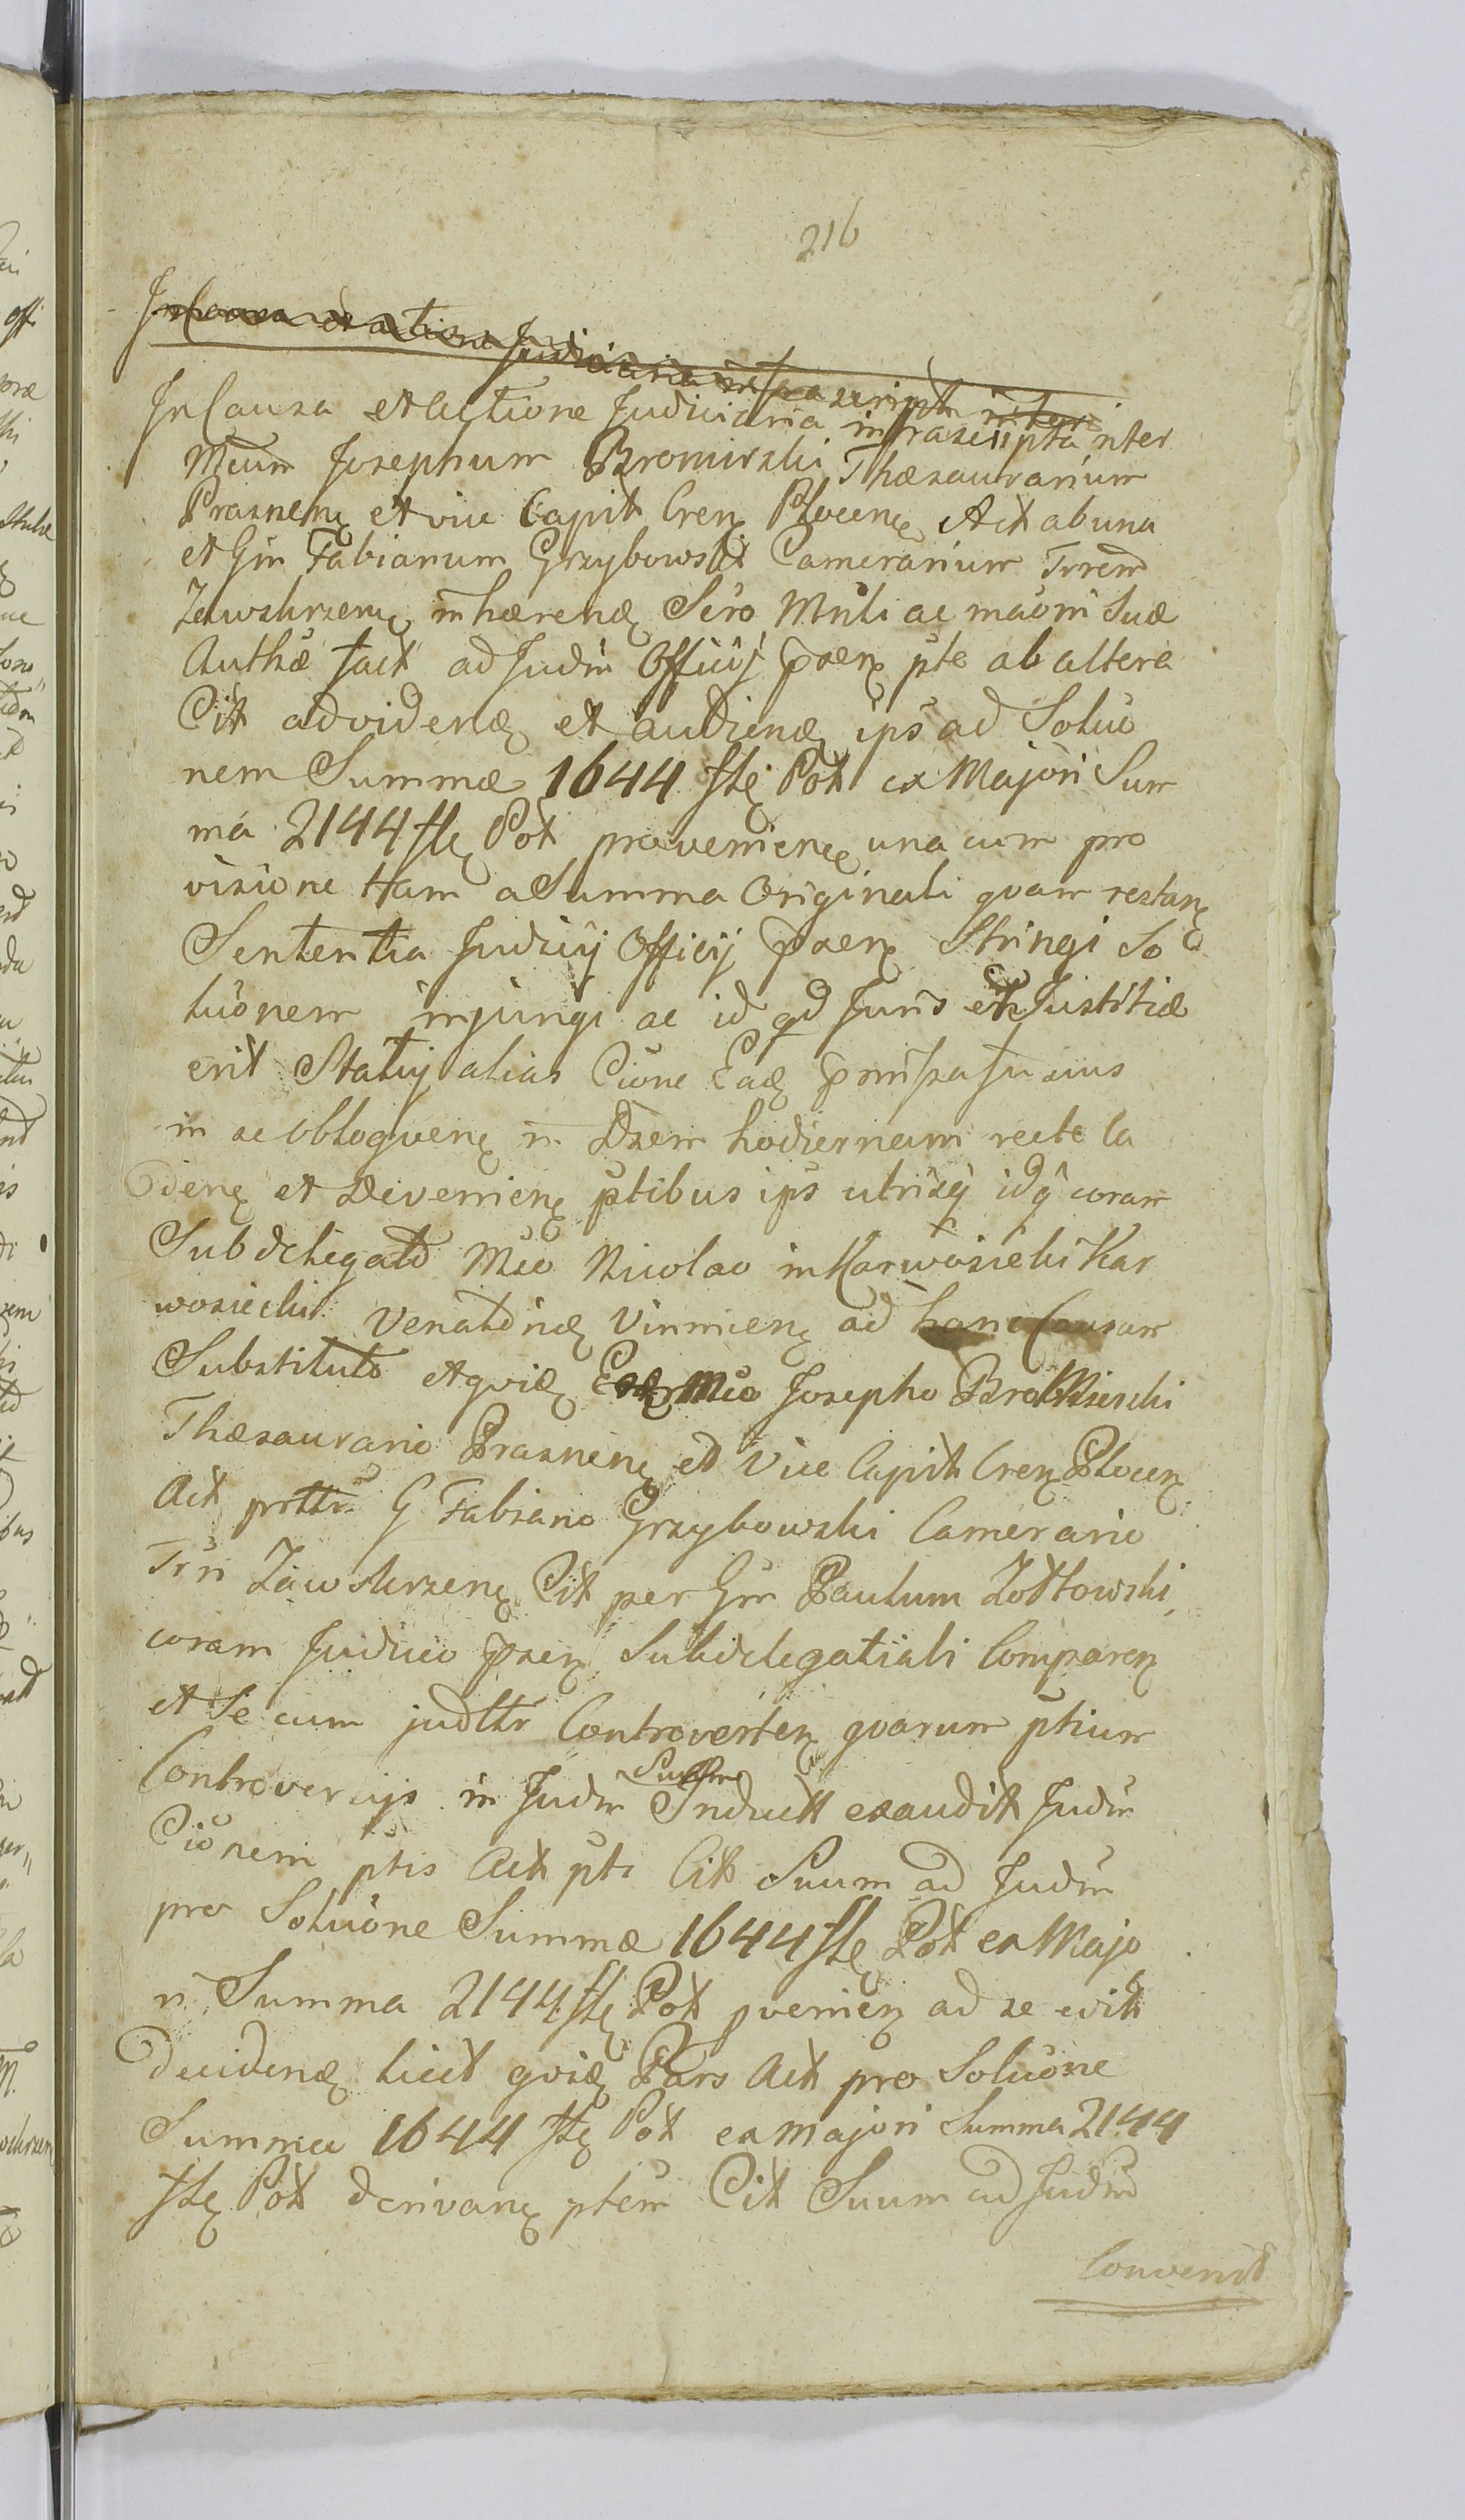 216
In Causa et actione Judiciaria infrascripta inter
In Causa et actione Judiciaria infrascripta inter
Mcum Josephum Bromirski Thæsaurarium
Prasnenę et vice Capit Cren Plocenę Act ab una
et Gm Fabianum Grzybowski Camerarium Trrem
Zawskrzenę inhærenę Scro Mnli ac maōni Suæ
Authæ fact ad Judm Officij præn pte ab altera
Cit ad videnę et audienę ips ad Soluo
nem Summæ 1644 flę Pol ex Majori Sum
ma 2144 flę Pol provenienę una cum pro
visione tam a Summa Originali qvam restanę
Sententia Judicij Officij præn Stringi So
luōnem injungi ac id qd Juris et Justitiæ
erit Statuj alias Cione Eaę
in se obloqvenę in Dzem hodiernam recte ca
denę et devenienę ptibus ips utrisq idq coram
Subdelegato Mco Nicolao in Karwosieki Kar
wosiecki Venatō næ Vinnicenę ad hanc Causam
Substituto et qvię Mco Josepho Bromirski
Thæsaurario Prasnenę et Vice Capit Cren Plocen
Act prttr G Fabiano Grzybowski Camerario
Trri Zawskrzenę Cit per Gm Paulum Zołtowski
coram Judicio præn Subdelegatiali Comparen
et Se cum judttr Controverten qvarum ptium
Controversijs in Judm Suum Induct exaudit Judm
Cionem ptis Act pti Cit Suum ad Judm
pro Soluōne Summæ 1644 flę Pol ex Majo
ri Summa 2144 flę Pol pvenien ad se
decidenę licet qvię Pars Act pro Soluōne
Summæ 1644 flę Pol ex majori Summa 2144
flę Pol derivanę ptem Cit Suum ad Judm
Convenit